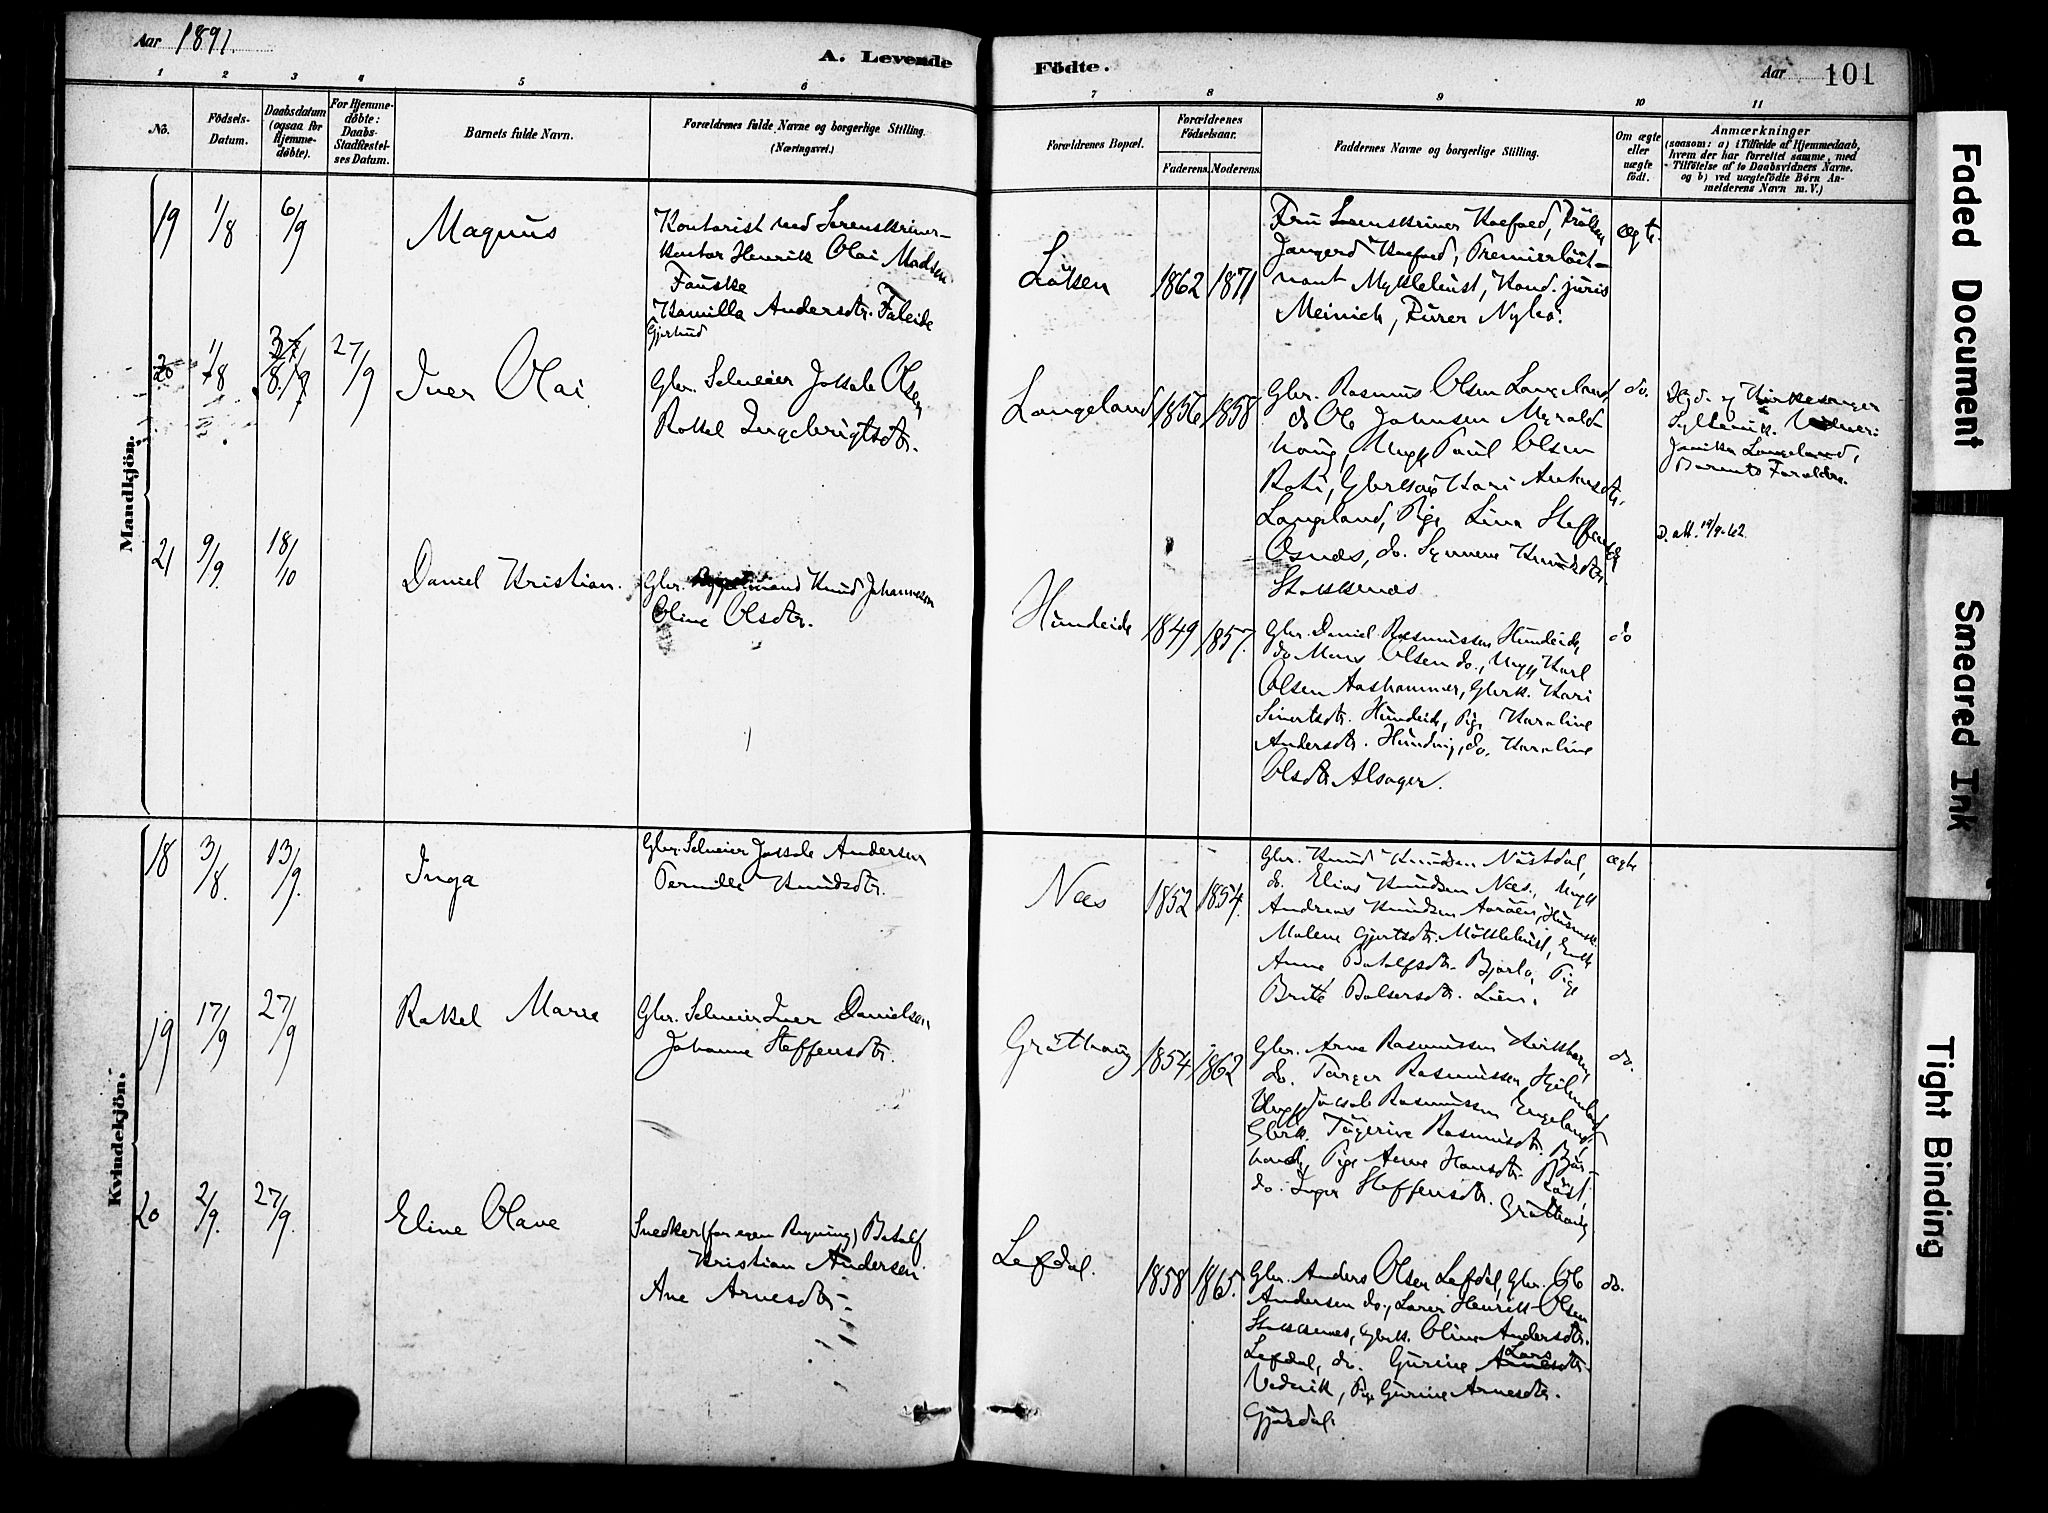 Aar 1891.
A. Levende
Födte.
Aar
101
1 2 3 4 5 6 7 8 9 10 11
No.
Födsels-
Datum.
Daabsdatum
(ogsaa for
Hjemme-
døbte).
For Hjemme-
døbte:
Daabs-
Stadfæstel-
ses Datum.
Barnets fulde Navn.
Forældrenes fulde Navne og borgerlige Stilling.
(Næringsvei.)
Forældrenes Bopæl.
Forældrenes
Födselsaar.
Faderens. Moderens.
Faddernes Navne og borgerlige Stilling.
Om ægte
eller
uægte
födt.
Anmærkninger
(saasom: a) i Tilfælde af Hjemmedaab,
hvem der har forrettet samme, med
Tilföielse af to Daabsvidners Navne.
og b) ved uægtefödte Börn An-
melderens Navn m. V.)
Mandkjön.
19
1/8
6/9
Magnus
Kontorist ved Sorenskriver-
kontor Henrik Olai Madsen
Fauske
Kamilla Andersdtr. Faleide
Gjertrud
Lotsen
1862 1871
Fru Sorenskriver Koefoed, Frøken
Koefoed, Premierløit-
nant Myklebust, Kand. juris
Meinich, Nybø.
ægte.
20
1/8
27/9
Iver Olai
Gbr. Selveier Jakob Olsen
Rakel Ingebrigtsdtr.
Langeland
1856 1858
Gbr. Rasmus Olsen Langeland,
do Ole Johnsen Myrold-
haug, Ungk. Paul Olsen
Kari Antonsdtr.
Langeland, Pige Lina Steffensdtr.
Osnæs, do. Synneve Knudsdtr.
Stokkenæs
do.
Hjd. af Kirkesanger
Langeland,
Barnets Forældre.
D. att. 19/9-62.
21
9/9.
18/10
Daniel Kristian.
Gbr. Knud Johannessen
Oline Olsdtr.
Hundeide
1849 1857.
Gbr. Daniel Rasmussen Hundeide,
do Mons Olsen do., Ungk. Karl
Olsen Aashammer, Gbrk. Kari
Sivertsdtr. Hundeide, Pige Karoline
Andersdtr. Hundeide, do. Karoline
Olsdtr Alsager.
do
Kvindekjön.
18
3/8.
13/9.
Inga
Gbr. Selveier Jakob Andersen
Pernille Knudsdtr.
Næs
1852 1854.
Gbr. Knud Knudsen Nøstdal,
do. Elias Knudsen Næs, Ungk
Andreas Knudsen Aarøen,
Malene Gjertsdtr. Möklebust,
Anne Batolfsdtr. Bjørlo, Pige
Britt Balsersdtr. Lien.
ægte
19
17/9
27/9
Rakel Marie
Gbr. Selveier Iver Danielsen
Johanne Steffensdtr.
Gröthaug
1854 1862
Gbr. Arne Rasmussen
do. Torger Rasmussen Hjelmeland
Ungk. Jakob Rasmussen Engeland,
Gbrk. Rasmusdtr.
Pige Anne Hansdtr.
do. Inger Steffensdtr. Gröthaug
do.
20
2/9.
27/9.
Eline Olave
Snedker (for egen Regning) Batolf
Kristian Andersen
Ane Arnesdtr.
Lefdal.
1858 1865.
Gbr. Anders Olsen Lefdal, Gbr. Ole
Andersen do., Lærer Henrik Olsen
Stokkenes, Gbrk. Oline Andersdtr.
Lefdal, do. Gurine Larsdtr.
Vedvik, Pige Gurine Arnesdtr.
Gjærdal.
do.
Faded Document
Smeared Ink
Tight Binding